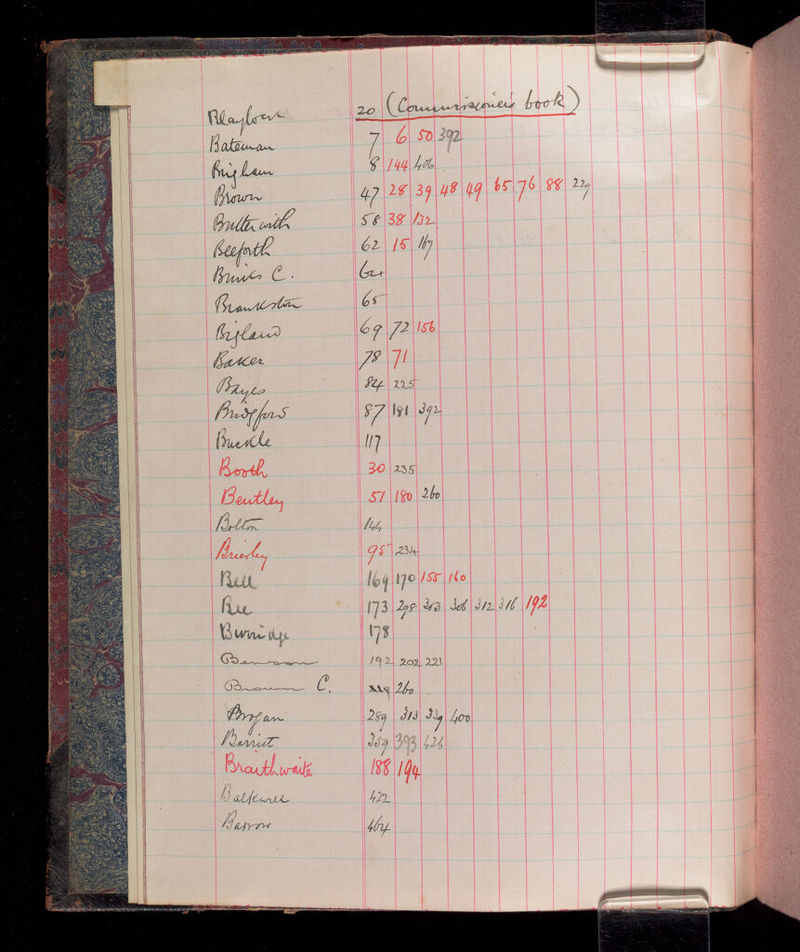 Blaylock 20 (Commissioners book)
Bateman 7 6 50 392
Brigham 8 144 406
Brown 47 28 39 48 49 65 76 88 229
Butterwith 58 38 132
Beeforth 62 15 167
Brinks C. 64
Brankston 65
Bigland 69 72 156
Baker 78 71
Bayes 84 225
Bridgford 87 181 392
Buckle 117
Booth 30 235
Bentley 51 180 260
Bolton 144
Brierley 95 234
Bell 169 170 155 160
Bee 173 298 303 306 312 316 192
178
Benson 192 202 221
Brown C. 260
Brogan 289 313 339 400
Barritt 359 393 426
Braithwaite 188 194
Balkwill 422
Barrow 464